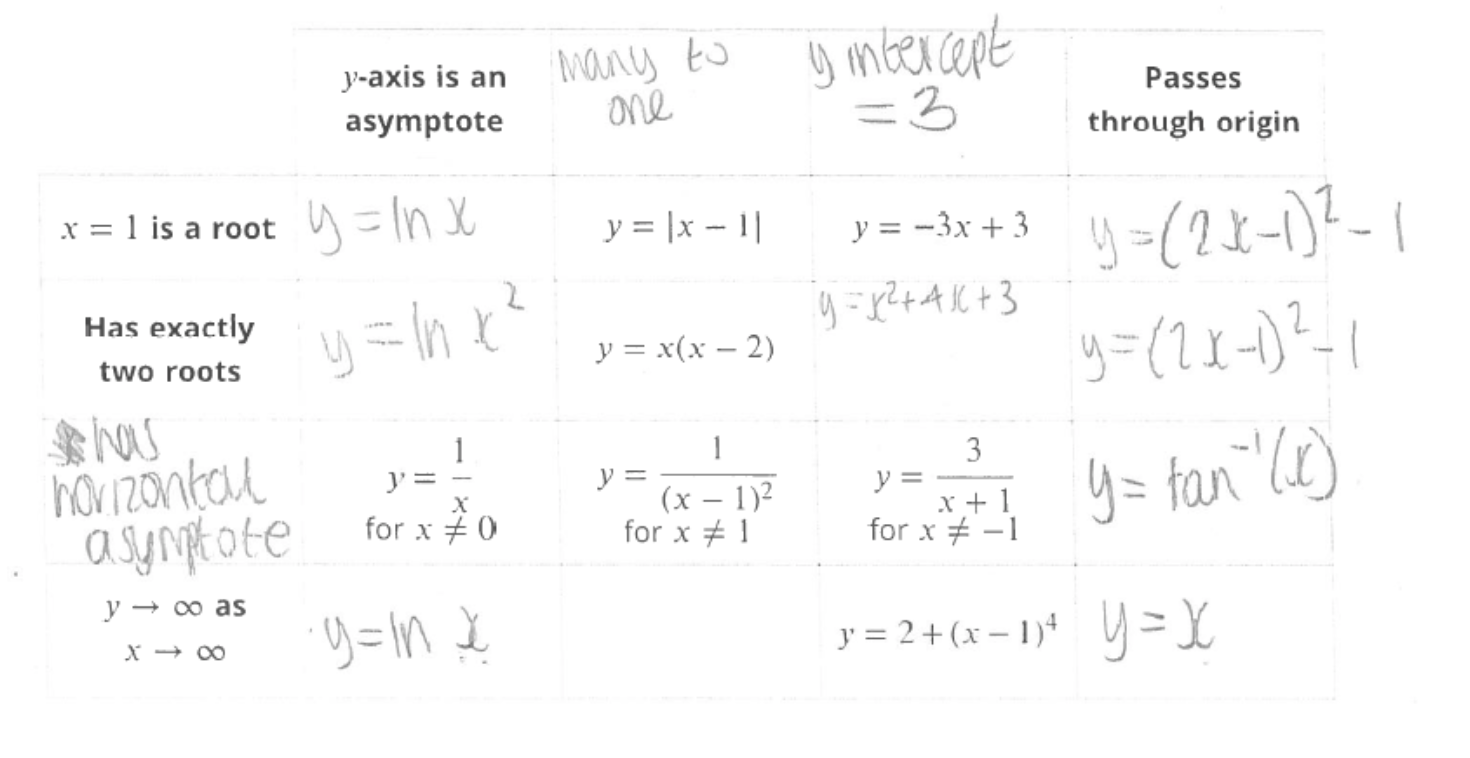 y-axis is an
asymptote
many to
one
y intercept
= 3
Passes
through origin
x = 1 is a root
y = ln x
y = |x − 1|
y = −3x + 3
y = (2x−1)² − 1
Has exactly
two roots
y = ln x²
y = x(x − 2)
y = x² + 4x + 3
y = (2x−1)² − 1
has
horizontal
asymptote
y = 1/x
for x ≠ 0
y = 1/(x − 1)²
for x ≠ 1
y = 3/(x + 1)
for x ≠ −1
y = tan⁻¹(x)
y → ∞ as
x → ∞
y = ln x
y = 2 + (x − 1)⁴
y = x